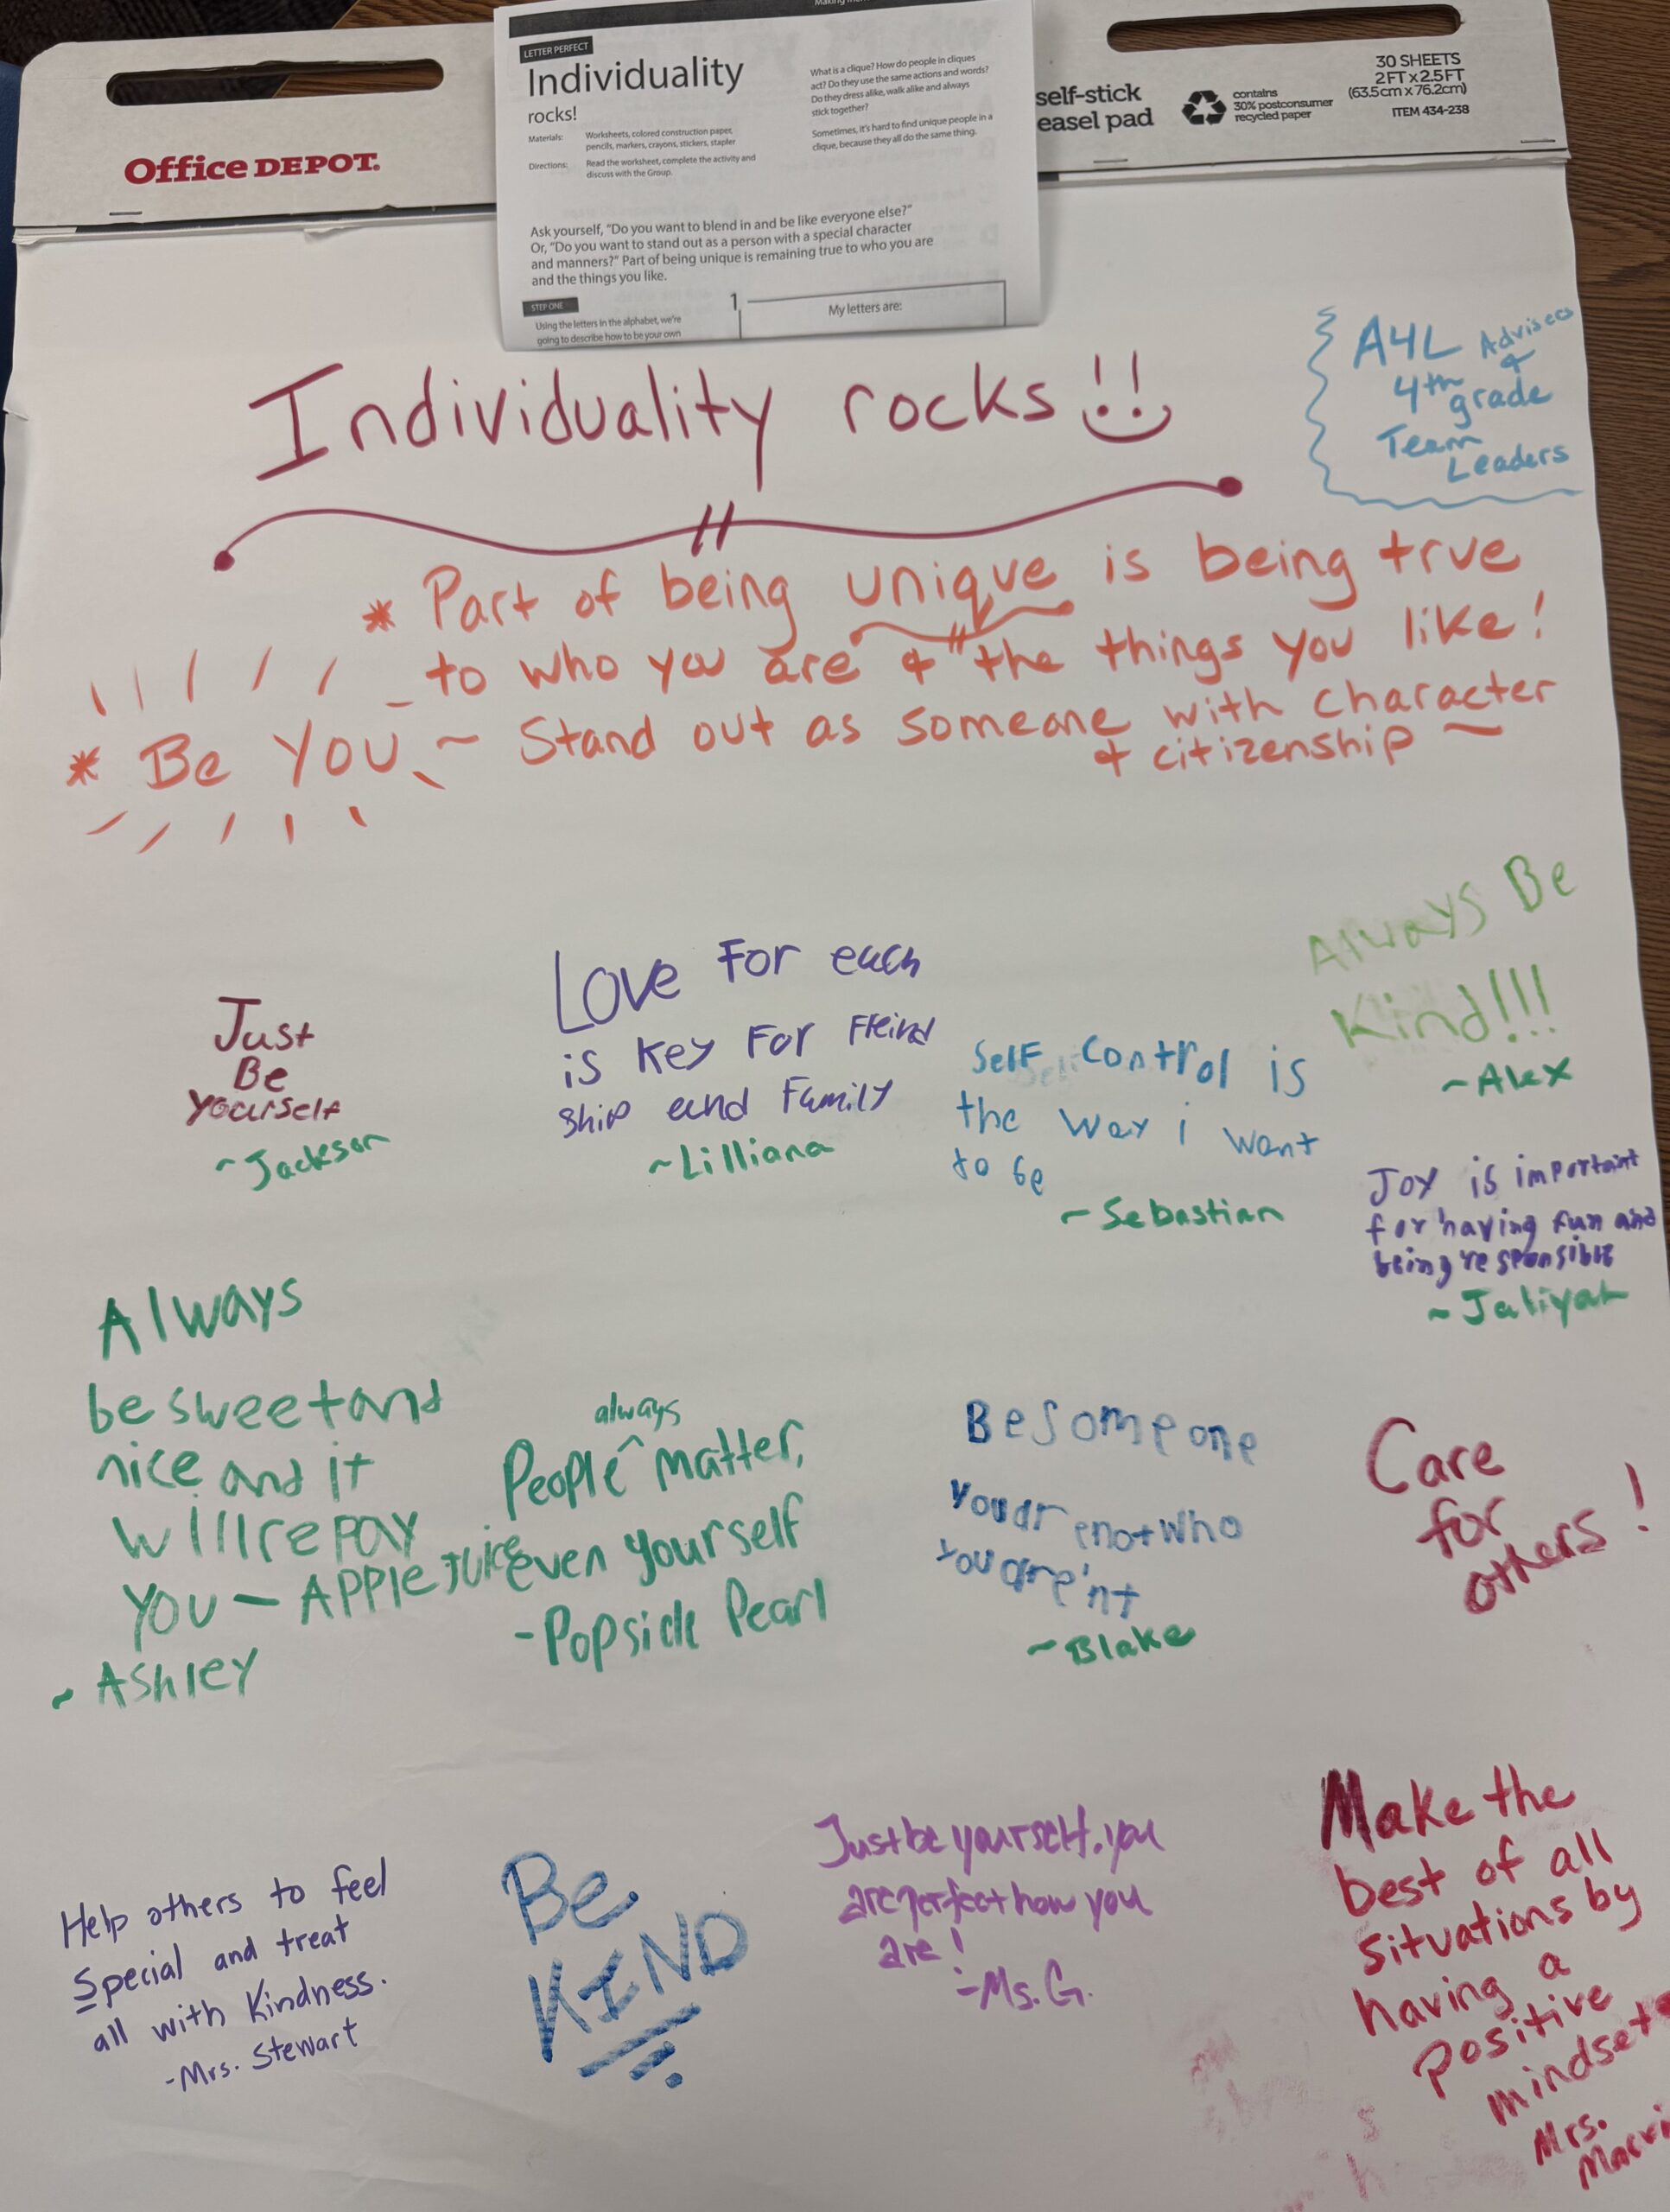 Making
LETTER PERFECT
Individuality
rocks!
Materials: Worksheets, colored construction paper,
pencils, markers, crayons, stickers, stapler
Directions: Read the worksheet, complete the activity and
discuss with the Group.
What is a clique? How do people in cliques
act? Do they use the same actions and words?
Do they dress alike, walk alike and always
stick together?
Sometimes, it's hard to find unique people in a
clique, because they all do the same thing.
Ask yourself, "Do you want to blend in and be like everyone else?"
Or, "Do you want to stand out as a person with a special character
and manners?" Part of being unique is remaining true to who you are
and the things you like.
STEP ONE
Using the letters in the alphabet, we're
going to describe how to be your own
1
My letters are:
Office DEPOT.
self-stick
easel pad
contains
30% postconsumer
recycled paper
30 SHEETS
2FT x 2.5FT
(63.5cm x 76.2cm)
ITEM 434-238
Individuality rocks!!
A4L Advisees
&
4th grade
Team
Leaders
* Part of being unique is being true
to who you are & the things you like!
* Be You ~ Stand out as someone with character
& citizenship ~
Just
Be
yourself
~Jackson
Love For each
is key For Freind
ship and Family
~Lilliana
Self control is
the way i want
to be
~Sebastian
Always Be
Kind!!!
~Alex
Joy is importaint
for having fun and
being responsible
~Jaliyah
Always
be sweet and
nice and it
will repay
you - APPLE JUICE
~ Ashley
always
People ^ matter,
even yourself
- Popsicle Pearl
Be Someone
you are not who
you are'nt
~Blake
Care
for
others!
Help others to feel
Special and treat
all with kindness.
-Mrs. Stewart
Be
KIND
Just be yourself. you
are perfect how you
are!
-Ms. G.
Make the
best of all
situations by
having a
positive
mindset
Mrs.